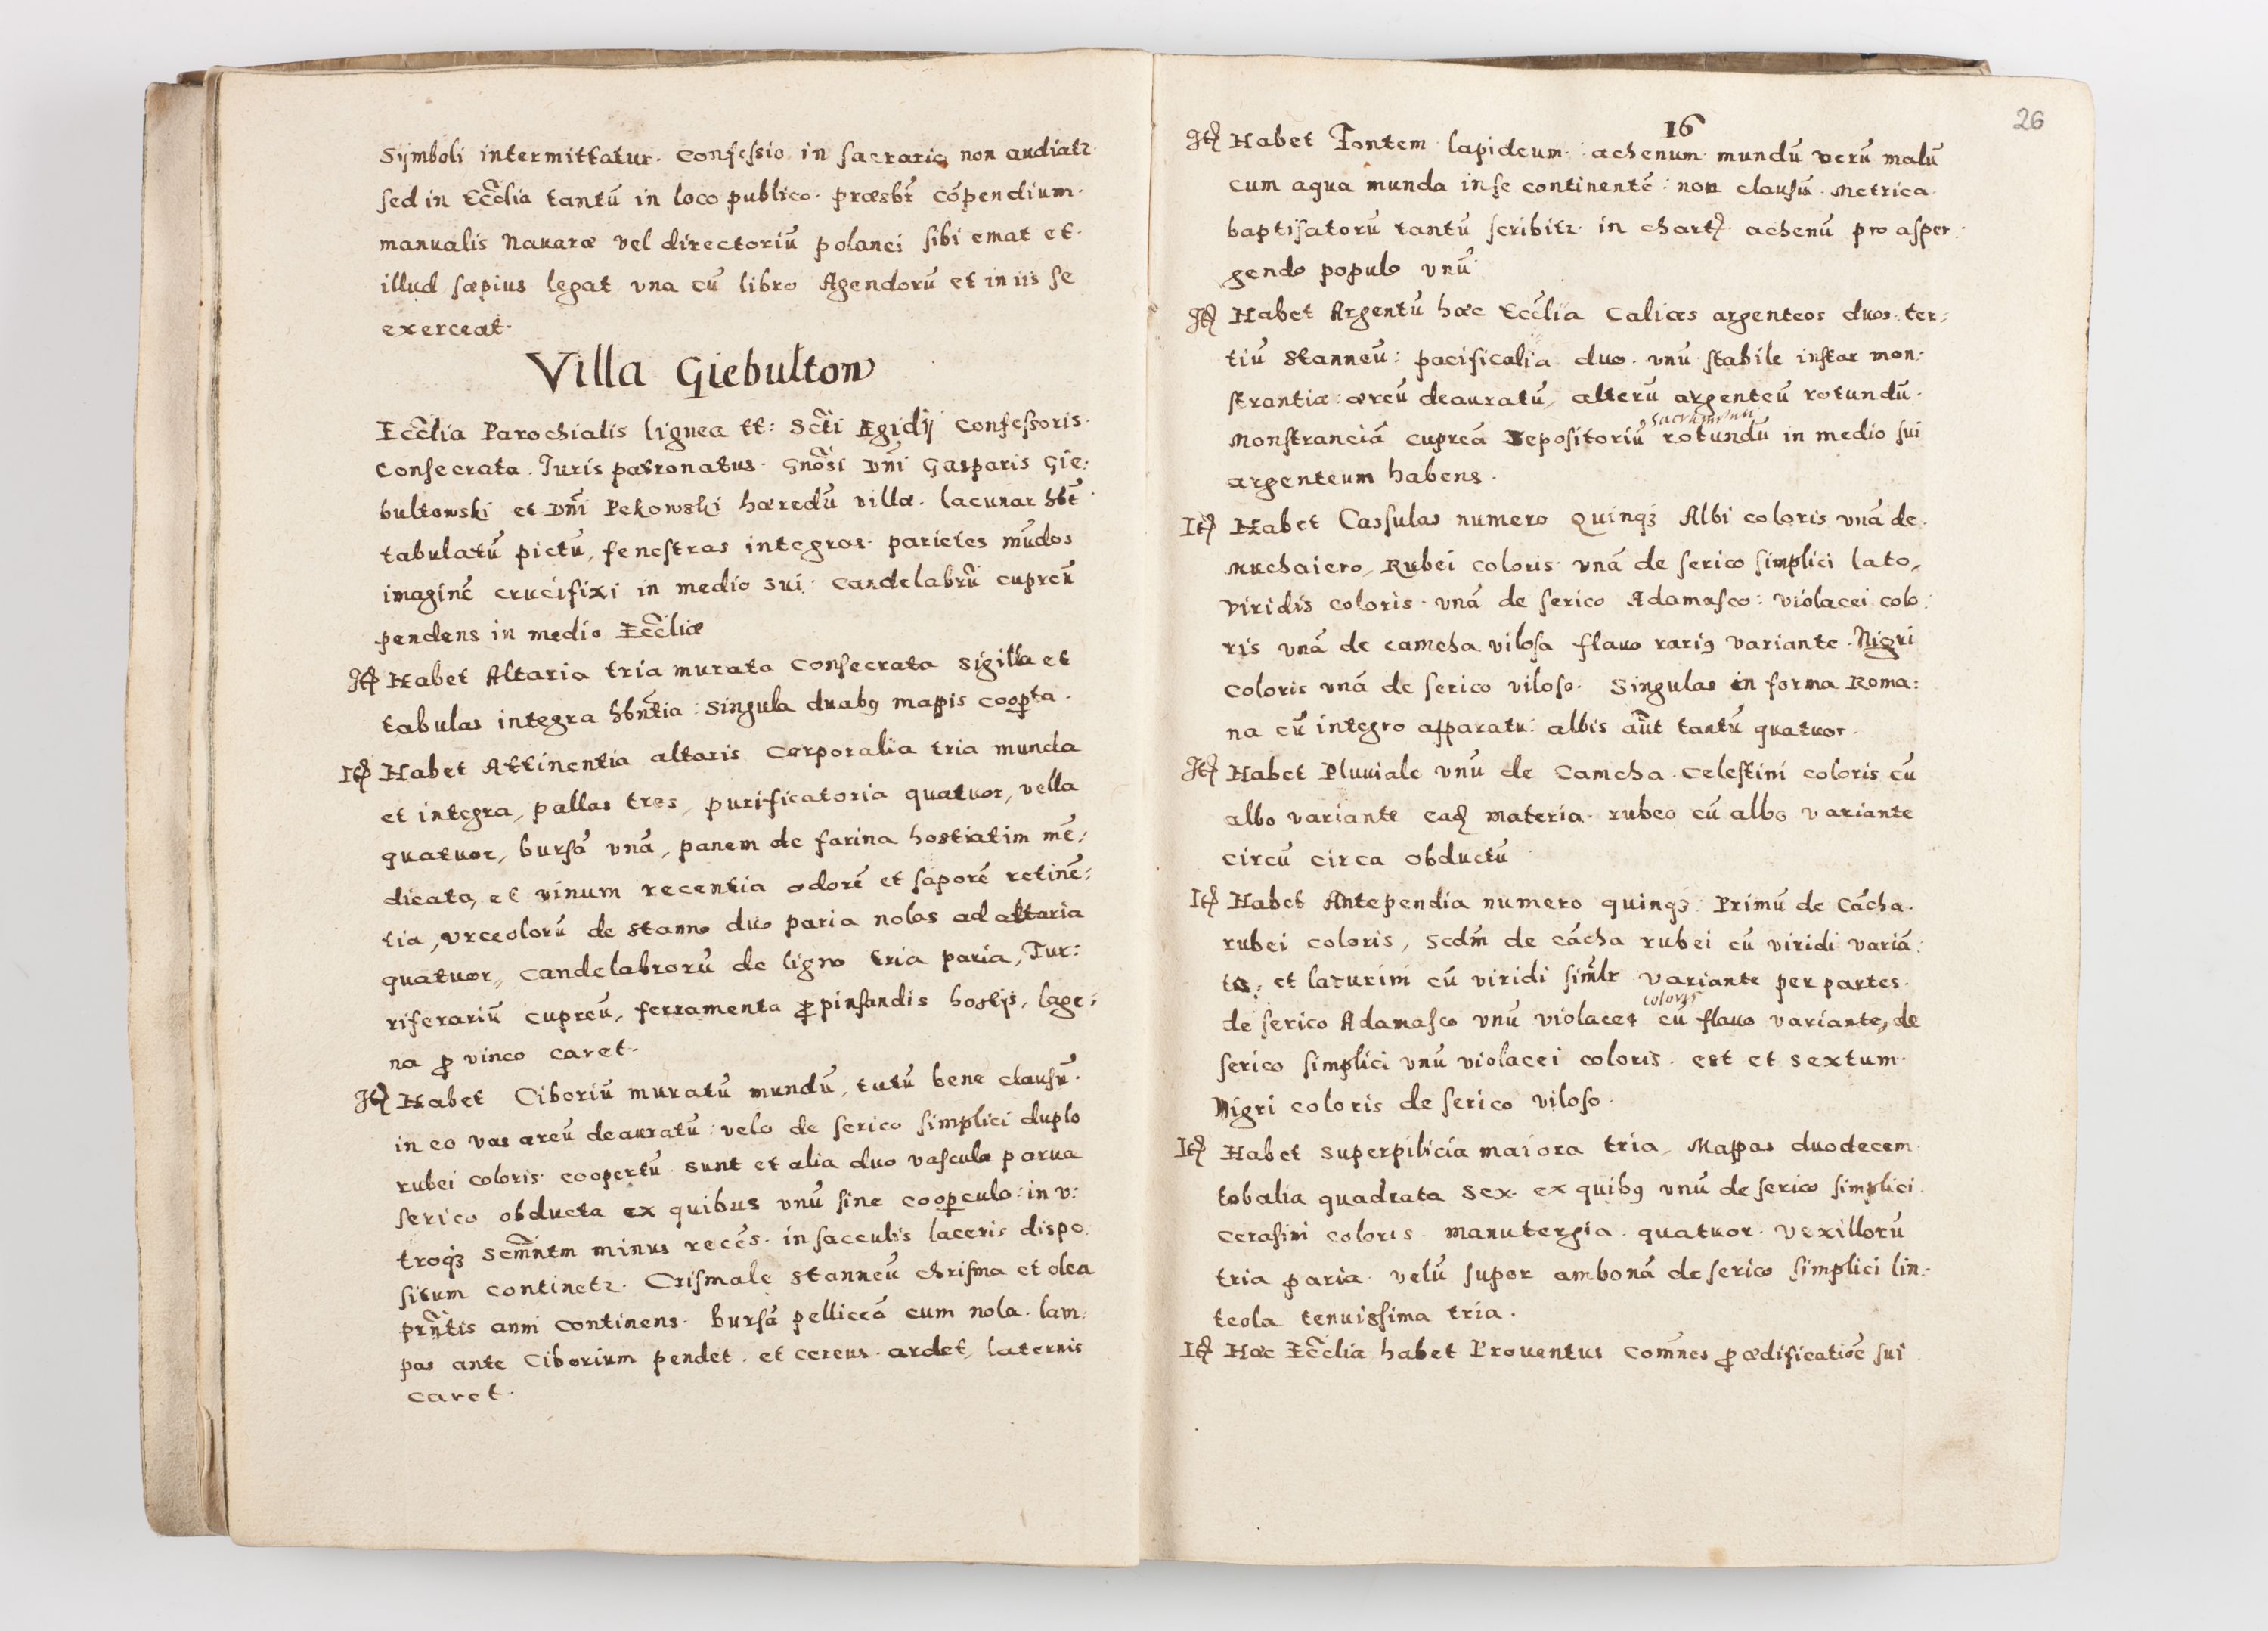 Sÿmboli intermittatur. Confessio in sacrario non audiatr
sed in Eccĺia tantū in loco publico. præsbr̄ cópendium.
manualis Nauaræ vel directoriū polanci sibi emat et.
illud sæpius legat vna cū libro Agendorū et in iis se
exerceat.
Villa Giebulton
Ecc̃lia Parochialis lignea tt: Sc̃ti Ægidÿ Confessoris.
Consecrata. Juris patronatus. Gnõsi Dñi Gasparis Gie:
bultowski et Dñi Pekowski hæredū villæ. lacunar hbt̄
tabulatū pictū, fenestras integras. parietes mūdos
imaginē crucifixi in medio sui. Candelabrū cupreū
pendens in medio Ecc̃liæ
Itē Habet Altaria tria murata consecrata sigilla et
tabulas integra hbñtia: singula duabꝰ mappis coopꝑta.
Itē Habet Attinentia altaris Corporalia tria munda
et integra, pallas tres, purificatoria quatuor, vella
quatuor, bursā vnā, panem de farina hostiatim mē:
dicata, et vinum recentia odorē et saporē retinē:
tia, vrceolorū de stanno duo paria nolas ad altaria
quatuor, candelabrorū de ligno tria paria, Tur:
riferariū cupreū, ferramenta ꝓ pinsandis hostÿs, lage:
na ꝓ vinco caret.
Itē Habet Ciboriū muratū mundū, tutū bene clausū.
in eo vas æreū deauratū: velo de serico simplici duplo
rubei coloris. coopertū sunt et alia duo vascula parua
serico obducta ex quibus vnū sine cooꝑculo: in v:
troqꝫ Scm̃ntm minus recēs. in sacculis laceris dispo
situm continetr. Crismale stanneū chrisma et olea
prñtis anni continens. bursā pelliceā cum nola. lam:
pas ante Ciborium pendet. et cereus. ardet, laternis
caret.
16
26
Itē Habet Fontem lapideum. achenum mundū verū malū
cum aqua munda in se continentē: non clausū. Metrica
baptisatorū tantū scribitr in chartꝭ. achenū pro asper:
gendo populo vnū.
Itē Habet Argentū hæc Ecc̃lia Calices argenteos duos. ter:
tiū stanneū: pacificalia duo. vnū stabile instar mon:
strantiæ: æreū deauratū, alterū argenteū rotundū.
Sacramenti
Monstranciā cupreā Depositoriū rotundū in medio sui
argenteum habens.
Itē Habet Cassulas numero Quinqꝫ Albi coloris vnā de.
Muchaiero, Rubei coloris vnā de serico simplici lato,
viridis coloris. vnā de serico Adamasco: violacei colo:
ris vnā de camcha vilosa flauo rariꝰ variante. Nigri
coloris vnā de serico viloso. Singulas in forma Roma:
na cū integro apparatu. albis aūt tantū quatuor.
Itē Habet Pluuiale vnū de Camcha. Celestini coloris cū
albo variante eaḋ materia. rubeo cū albo variante
circū circa obductū
Itē Habet Antependia numero quinqꝫ: Primū de Cācha.
rubei coloris, Scdm̄ de cācha rubei cū viridi variā:
te: et lazurini cū viridi simlr variante per partes.
coloris
de serico Adamasco vnū violacei cū flauo variante, de
serico simplici vnū violacei coloris. est et sextum.
Nigri coloris de serico viloso.
Itē Habet superpilicia maiora tria, Mappas duodecem
tobalia quadrata sex. ex quibꝰ vnū de serico simplici.
cerasini coloris. manutergia. quatuor. Vexillorū
tria paria. velū super ambonā de serico simplici lin:
teola tenuissima tria.
Itē Hæc Ecc̃lia habet Prouentus com̃nes ꝓ ædificatiōe sui